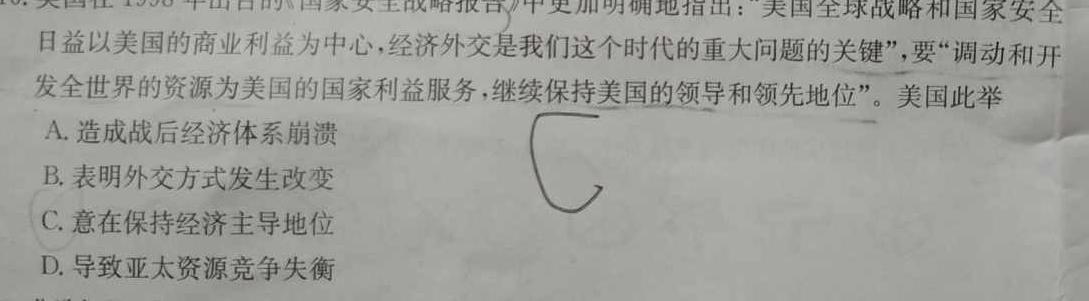 美国在1998年出台的《国家安全战略报告》中更加明确地指出:“美国全球战略和国家安全
日益以美国的商业利益为中心,经济外交是我们这个时代的重大问题的关键”,要“调动和开
发全世界的资源为美国的国家利益服务,继续保持美国的领导和领先地位”。美国此举
A. 造成战后经济体系崩溃
B. 表明外交方式发生改变
C. 意在保持经济主导地位
D. 导致亚太资源竞争失衡
C